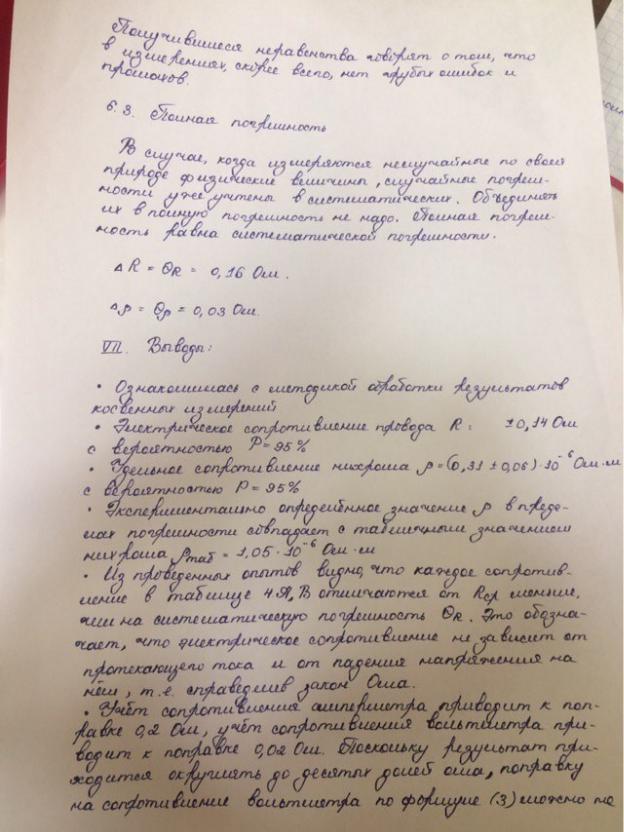 Получившиеся неравенства говорят о том, что
в измерениях, скорее всего, нет грубых ошибок и
промахов.
6.3. Полная погрешность
В случае, когда измеряются неслучайные по своей
природе физические величины, случайные погреш-
ности уже учтены в систематических. Объединять
их в полную погрешность не надо. Полная погреш-
ность равна систематической погрешности.
ΔR = ΘR = 0,16 Ом.
Δρ = Θρ = 0,03 Ом.
VII. Выводы:
• Ознакомилась с методикой обработки результатов
косвенных измерений
• Электрическое сопротивление провода R = ±0,14 Ом
с вероятностью P = 95%
• Удельное сопротивление нихрома ρ = (0,31 ± 0,06)·10⁻⁶ Ом·м
с вероятностью P = 95%
• Экспериментально определённое значение ρ в преде-
лах погрешности совпадает с табличным значением
нихрома ρтаб = 1,05·10⁻⁶ Ом·м
• Из проведенных опытов видно, что каждое сопротив-
ление в таблице 4 Я, В отличаются от Rср меньше,
чем на систематическую погрешность ΘR. Это обозна-
чает, что электрическое сопротивление не зависит от
протекающего тока и от падения напряжения на
нём, т.е. справедлив закон Ома.
• Учёт сопротивления амперметра приводит к поп-
равке 0,2 Ом, учёт сопротивления вольтметра при-
водит к поправке 0,02 Ом. Поскольку результат при-
ходится округлять до десятых долей ома, поправку
на сопротивление вольтметра по формуле (3) можно не